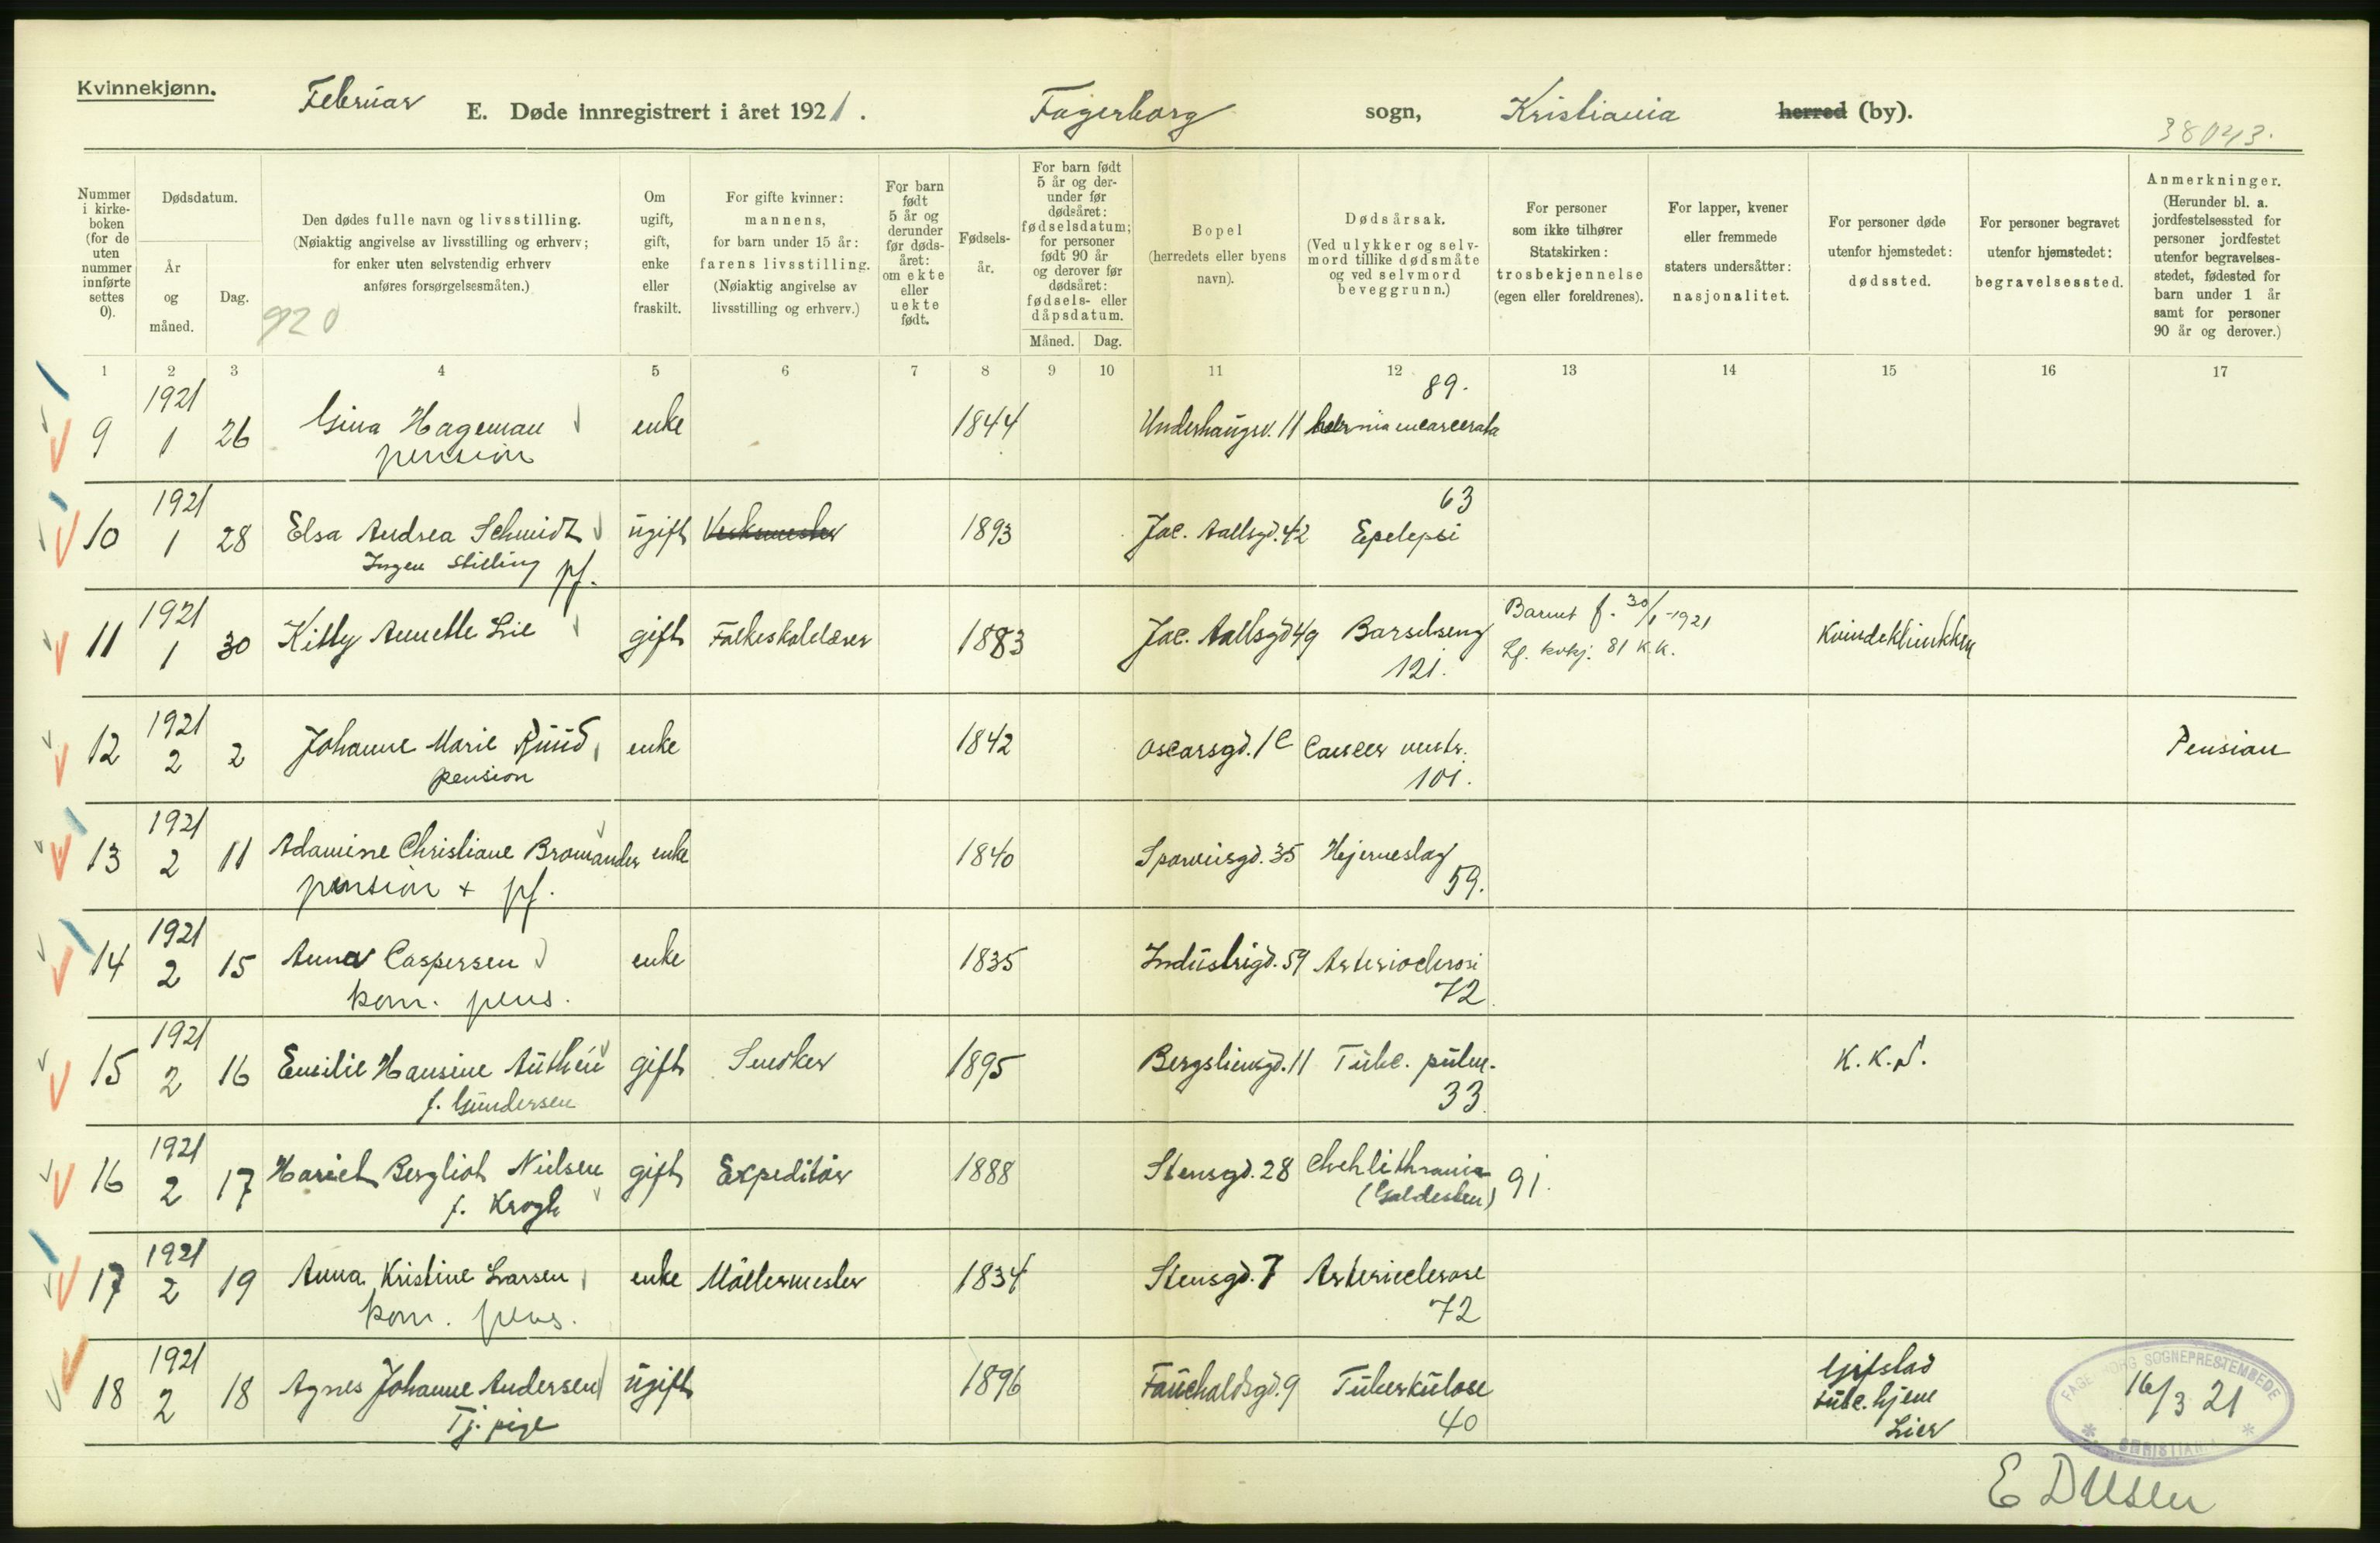 Kvinnekjønn.
Februar E. Døde innregistrert i året 1921. Fagerborg sogn, Kristiania herred (by).
38043.
Nummer i kirke-boken (for de uten nummer innførte settes 0).
Dødsdatum.
År og måned.
Dag.
Den dødes fulle navn og livsstilling.
(Nøiaktig angivelse av livsstilling og erhverv;
for enker uten selvstendig erhverv
anføres forsørgelsesmåten.)
920
Om ugift, gift, enke eller fraskilt.
For gifte kvinner: mannens, for barn under 15 år: farens livsstilling. (Nøiaktig angivelse av livsstilling og erhverv.)
For barn født 5 år og derunder før døds-året: om ekte eller uekte født.
Fødsels-år.
For barn født 5 år og der-under før dødsåret: fødselsdatum; for personer født 90 år og derover før dødsåret: fødsels- eller dåpsdatum.
Måned. Dag.
Bopel (herredets eller byens navn).
Dødsårsak. (Ved ulykker og selv-mord tillike dødsmåte og ved selvmord beveggrunn.)
For personer som ikke tilhører Statskirken: trosbekjennelse (egen eller foreldrenes).
For lapper, kvener eller fremmede staters undersåtter: nasjonalitet.
For personer døde utenfor hjemstedet: dødssted.
For personer begravet utenfor hjemstedet: begravelsessted.
Anmerkninger. (Herunder bl. a. jordfestelsessted for personer jordfestet utenfor begravelses-stedet, fødested for barn under 1 år samt for personer 90 år og derover.)
1 2 3 4 5 6 7 8 9 10 11 12 13 14 15 16 17
9 1921 1 26 Gina Hageman enke 1844 Underhaugsv. 11 hernia incarcerata 89.
pension
10 1921 1 28 Elsa Andrea Schmidt ugift Verksmester 1893 Jac. Aallsgd. 42 Epelepsi 63
Ingen Stilling pf.
11 1921 1 30 Kitty Annette Lie gift Folkeskolelærer 1883 Jac. Aallsgd 49 Barselseng 121. Barnet f. 30/1-1921 Kvindeklinikken
81 K.K.
12 1921 2 2 Johanne Marie Ruud enke 1842 Oscarsgd. 1c Cancer ventr. 101. Pension
pension
13 1921 2 11 Adamine Christiane Bromander enke 1840 Sporveisgd. 35 Hjerneslag 59.
pension + pf.
14 1921 2 15 Anna Caspersen enke 1835 Industrigd. 59 Arterioclerosi 72
kom. pens.
15 1921 2 16 Emilie Hansine Authén gift Snedker 1895 Bergsliensgd. 11 Tubc. pulm. 33. K.K.S.
f. Gundersen
16 1921 2 17 Hariet Bergliot Nielsen gift Expeditör 1888 Stensgd. 28 (Galdesten) 91.
f. Krogh
17 1921 2 19 Anna Kristine Larsen enke Möllermester 1834 Stensgd. 7 Arterieclerose 72
kom. pens.
18 1921 2 18 Agnes Johanne Andersen ugift 1896 Fauchaldsgd. 9 Tuberkulose 40 Gjifstad tubc. hjem Lier
Tj. pige
FAGERBORG SOGNEPRESTEMBEDE
16/3 21
CHRISTIANIA